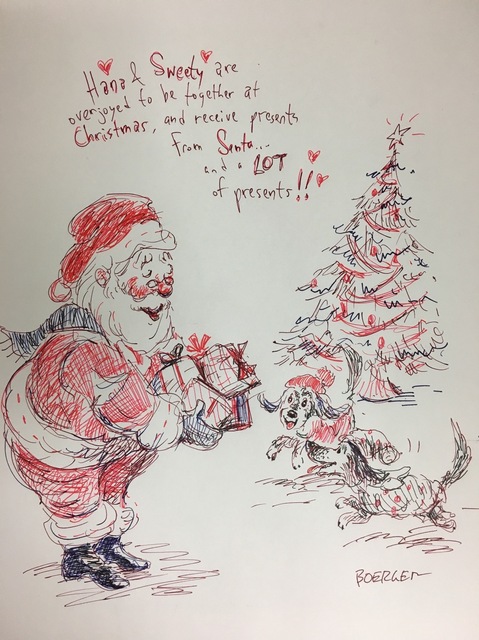 Hana & Sweety are
overjoyed to be together at
Christmas, and receive presents
From Santa...
and a LOT
of presents!!
BOERGER